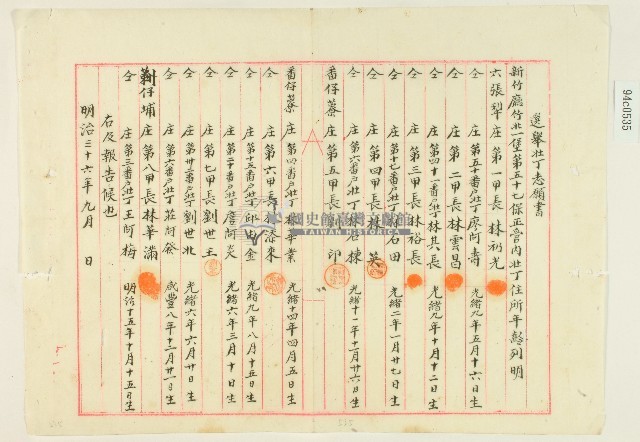 選舉壯丁志願書
新竹廳竹北一堡第五十七保正管內壯丁住所年齡列明
六張犂庄第一甲長林礽光
仝庄第五十番戶壯丁廖阿壽 光緒九年五月十六日生
仝庄第二甲長林雲昌
仝庄第四十一番戶壯丁林其長 光緒九年十月十二日生
仝庄第三甲長林裕長
仝庄第十七番戶壯丁林石田 光緒二年一月廿七日生
仝庄第四甲長林 英
仝庄第六番戶壯丁林石棟 光緒十一年十一月廿六日生
番仔藔庄第五甲長 印
番仔藔庄第四番戶壯丁 華業 光緒十四年四月五日生
仝庄第六甲長林添來
仝庄第十五番戶壯丁邱 金 光緒九年八月十五日生
仝庄第二十番戶壯丁詹阿炎 光緒六年三月十日生
仝庄第七甲長劉世王
仝庄第廿三番戶壯丁劉世北 光緒六年六月廿日生
仝庄第六番戶壯丁莊阿發 咸豐八年十二月廿一日生
藔仔埔庄第八甲長林華滿
仝庄第三番戶壯丁王阿梅 明治十五年十月十五日生
右及報告候也
明治三十六年九月 日
國史館臺灣文獻館
TAIWAN HISTORICA
94c0535